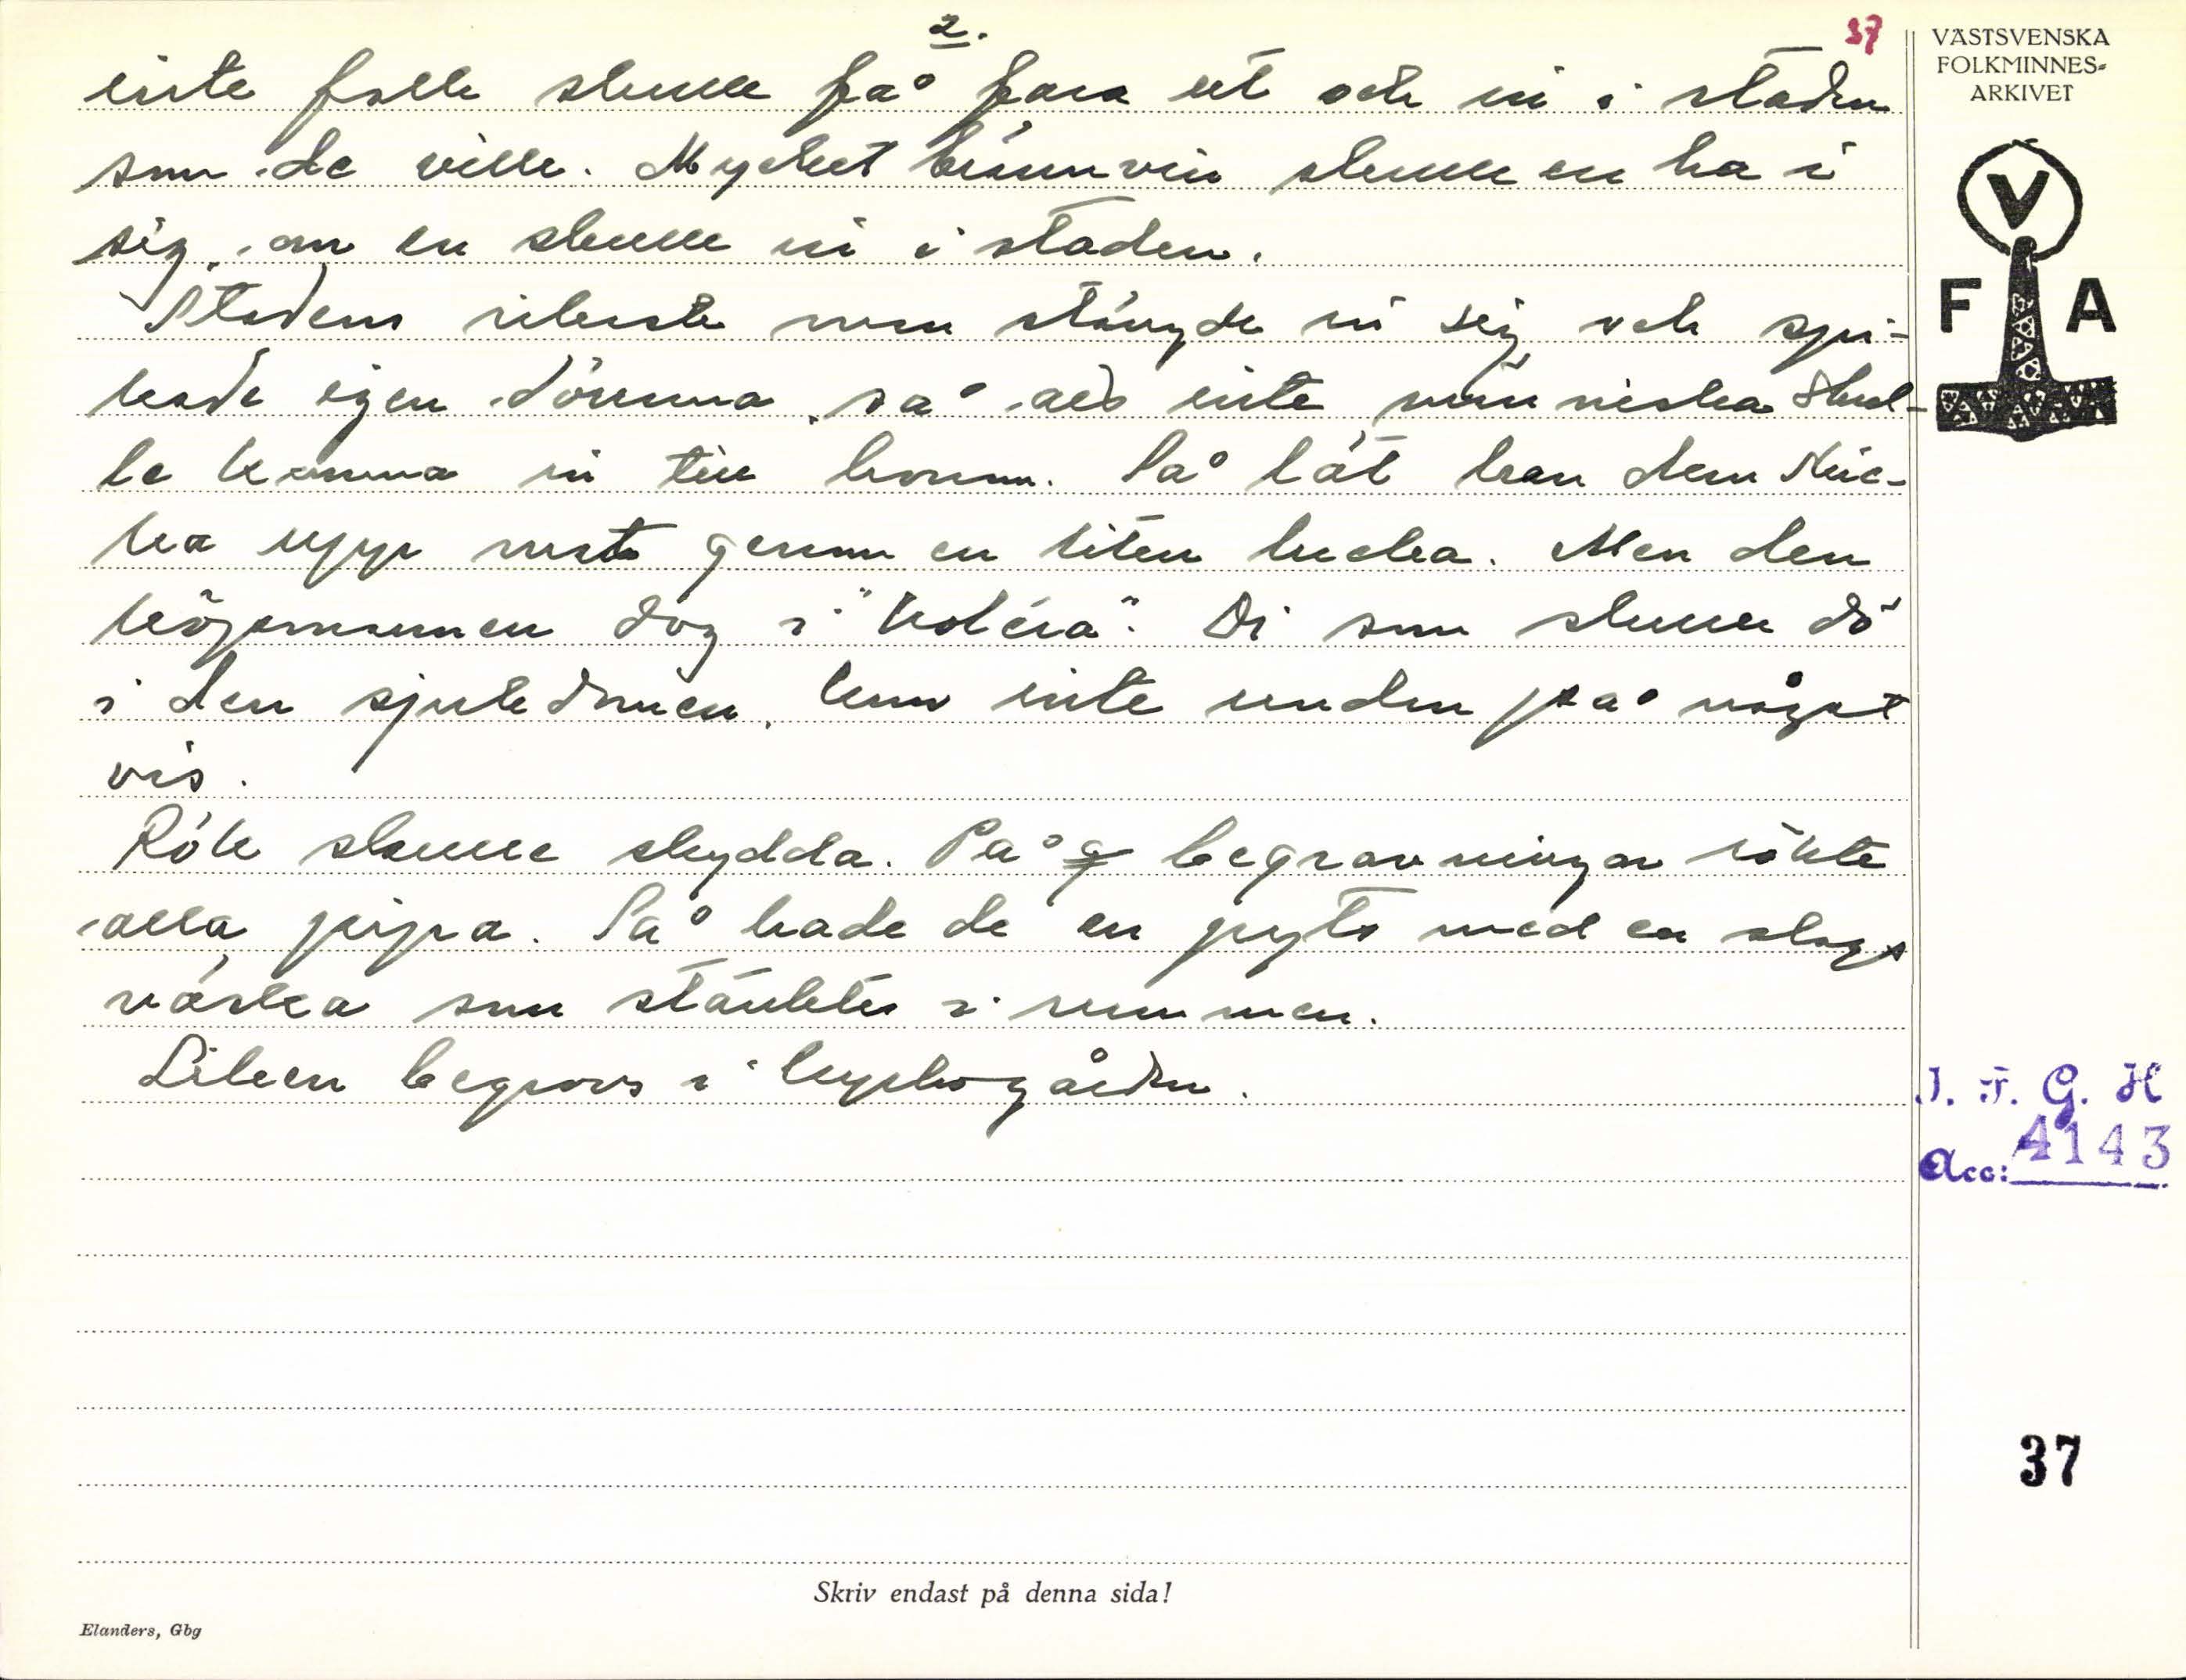 2.
37
inte folk skulle få fara ut och in i staden
som de ville. Mycket brännvin skulle en ha i
sig, om en skulle in i staden.
Stadens rikaste man stängde in sig och spi-
kade igen dörrarna, så att inte människa skul-
le komma in till honom. Så lät han dem skic-
ka upp mat genom en liten lucka. Men den
köpmannen dog i "koléra". Di som skulle dö
i den sjukdomen, kom inte undan på något
vis.
Rök skulle skydda. På begravningar rökte
alla pipa. Så hade de en pyts med en slags
vätska som stänktes i rummen.
Liken begrovs i kyrkogården.
VÄSTSVENSKA
FOLKMINNES-
ARKIVET
V
F A
I. F. G. H
Acc: 4143
37
Skriv endast på denna sida!
Elanders, Gbg